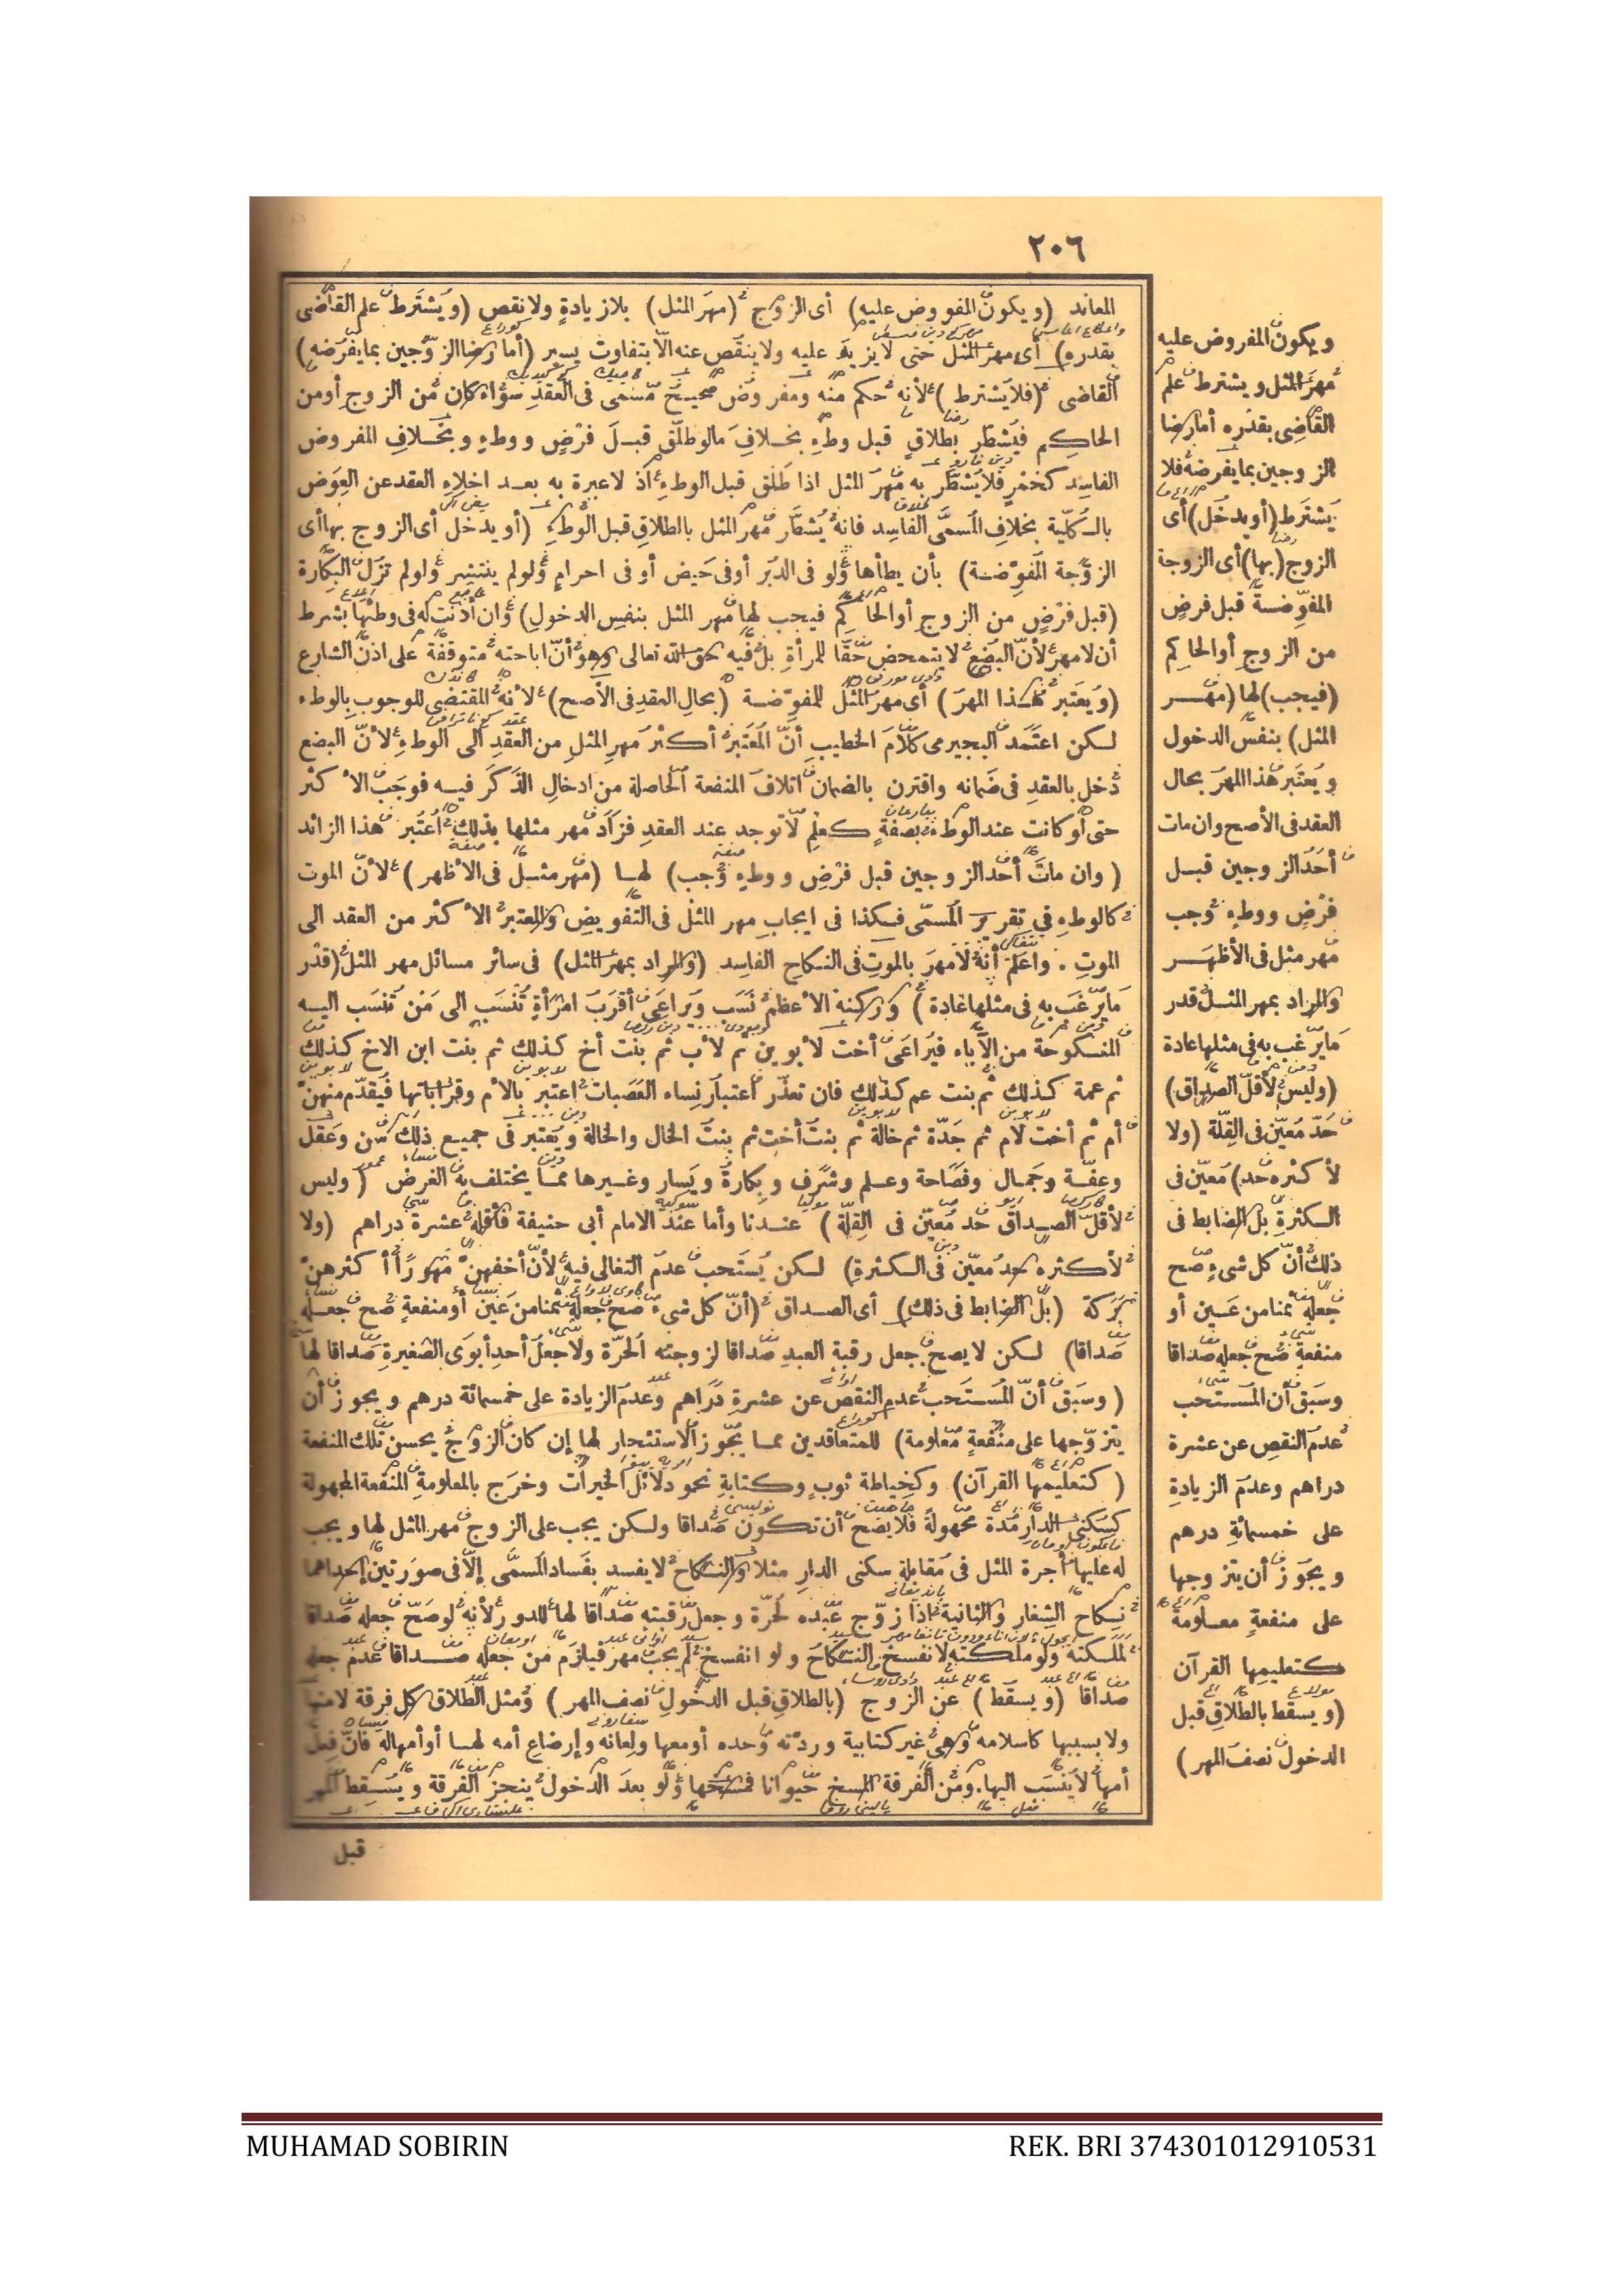 ٢٠٦
المعاند (ويكون المفروض عليه) أى الزوج (مهر المثل) بلا زيادة ولا نقص (ويشترط علم القاضى
بقدره) أى مهر المثل حتى لا يزيد عليه ولا ينقص عنه الا بتفاوت يسير (أما رضا الزوجين بما يفرضه)
القاضى (فلا يشترط) لأنه حكم منه ومفروض صحيح مسمى فى العقد سواء كان من الزوج أو من
الحاكم فيشطر بطلاق قبل وطء بخلاف ما لو طلق قبل فرض ووطء وبخلاف المفروض
الفاسد كخمر فلا يشطر به مهر المثل اذا طلق قبل الوطء اذ لا عبرة به بعد اخلاء العقد عن العوض
بالكلية بخلاف المسمى الفاسد فانه يشطر مهر المثل بالطلاق قبل الوطء (أو يدخل أى الزوج بها أى
الزوجة المفوضة) بأن يطأها ولو فى الدبر أو فى حيض أو فى احرام ولو لم ينتشر ولو لم تزل البكارة
(قبل فرض من الزوج أو الحاكم فيجب لها مهر المثل بنفس الدخول) وان أذنت له فى وطئها بشرط
أن لا مهر لأن البضع لا يتمحض حقا للمرأة بل فيه حق الله تعالى وهو أن اباحته متوقفة على اذن الشارع
(ويعتبر هذا المهر) أى مهر المثل للمفوضة (بحال العقد فى الأصح) لأنه المقتضى للوجوب بالوطء
لكن اعتمد البجيرمى كلام الخطيب أن المعتبر أكثر مهر المثل من العقد الى الوطء لأن البضع
دخل بالعقد فى ضمانه واقترن بالضمان اتلاف المنفعة الحاصلة من ادخال الذكر فيه فوجب الأكثر
حتى لو كانت عند الوطء بصفة كعلم لا توجد عند العقد فزاد مهر مثلها بذلك اعتبر هذا الزائد
(وان مات أحد الزوجين قبل فرض ووطء وجب) لها (مهر مثل فى الأظهر) لأن الموت
كالوطء فى تقرير المسمى فكذا فى ايجاب مهر المثل فى التفويض والمعتبر الأكثر من العقد الى
الموت . واعلم أنه لا مهر بالموت فى النكاح الفاسد (والمراد بمهر المثل) فى سائر مسائل مهر المثل (قدر
ما يرغب به فى مثلها عادة) وركنه الأعظم نسب ويراعى أقرب امرأة تنسب الى من تنسب اليه
المنكوحة من الآباء فيراعى أخت لأبوين ثم لأب ثم بنت أخ كذلك ثم بنت ابن الاخ كذلك
ثم عمة كذلك ثم بنت عم كذلك فان تعذر اعتبار نساء العصبات اعتبر بالأم وقراباتها فيقدم منهن
أم ثم أخت لام ثم جدة ثم خالة ثم بنت أخت ثم بنت الخال والخالة ويعتبر فى جميع ذلك سن وعقل
وعفة وجمال وفصاحة وعلم وشرف وبكارة ويسار وغيرها مما يختلف به الغرض (وليس
لأقل الصداق حد معين فى القلة) عندنا وأما عند الامام أبى حنيفة فأقله عشرة دراهم (ولا
لأكثره حد معين فى الكثرة) لكن يستحب عدم التغالى فيه لأن أخفهن مهورا أكثرهن
بركة (بل الضابط فى ذلك) أى الصداق (أن كل شىء صح جعله ثمنا من عين أو منفعة صح جعله
صداقا) لكن لا يصح جعل رقبة العبد صداقا لزوجته الحرة ولا جعل أحد أبوى الصغيرة صداقا لها
(وسبق أن المستحب عدم النقص عن عشرة دراهم وعدم الزيادة على خمسمائة درهم ويجوز أن
يتزوجها على منفعة معلومة) للمتعاقدين مما يجوز الاستئجار لها إن كان الزوج يحسن تلك المنفعة
(كتعليمها القرآن) وكخياطة ثوب وكتابة نحو دلائل الخيرات وخرج بالمعلومة المنفعة المجهولة
كسكنى الدار مدة مجهولة فلا يصح أن تكون صداقا ولكن يجب على الزوج مهر المثل لها ويجب
له عليها أجرة المثل فى مقابلة سكنى الدار مثلا والنكاح لا يفسد بفساد المسمى إلا فى صورتين إحداهما
نكاح الشغار والثانية اذا زوج عبده لحرة وجعل رقبته صداقا لها للدور لأنه لو صح جعله صداقا
لملكته ولو ملكته لانفسخ النكاح ولو انفسخ لم يجب مهر فيلزم من جعله صداقا عدم جعله
صداقا (ويسقط) عن الزوج (بالطلاق قبل الدخول نصف المهر) ومثل الطلاق كل فرقة لا منها
ولا بسببها كاسلامه وهى غير كتابية وردته وحده أو معها ولعانه وإرضاع أمه لها أو أمها له فان فعل
أمها لا ينسب اليها. ومن الفرقة المسخ حيوانا فمسخها ولو بعد الدخول ينجز الفرقة ويسقط المهر
قبل
ويكون المفروض عليه
مهر المثل ويشترط علم
القاضى بقدره أما رضا
الزوجين بما يفرضه فلا
يشترط (أو يدخل) أى
الزوج (بها) أى الزوجة
المفوضة قبل فرض
من الزوج أو الحاكم
(فيجب) لها (مهر
المثل) بنفس الدخول
ويعتبر هذا المهر بحال
العقد فى الأصح وان مات
أحد الزوجين قبل
فرض ووطء وجب
مهر مثل فى الأظهر
والمراد بمهر المثل قدر
ما يرغب به فى مثلها عادة
(وليس لأقل الصداق)
حد معين فى القلة (ولا
لأكثره حد) معين فى
الكثرة بل الضابط فى
ذلك أن كل شىء صح
جعله ثمنا من عين أو
منفعة صح جعله صداقا
وسبق أن المستحب
عدم النقص عن عشرة
دراهم وعدم الزيادة
على خمسمائة درهم
ويجوز أن يتزوجها
على منفعة معلومة
كتعليمها القرآن
(ويسقط بالطلاق قبل
الدخول نصف المهر)
MUHAMAD SOBIRIN
REK. BRI 374301012910531